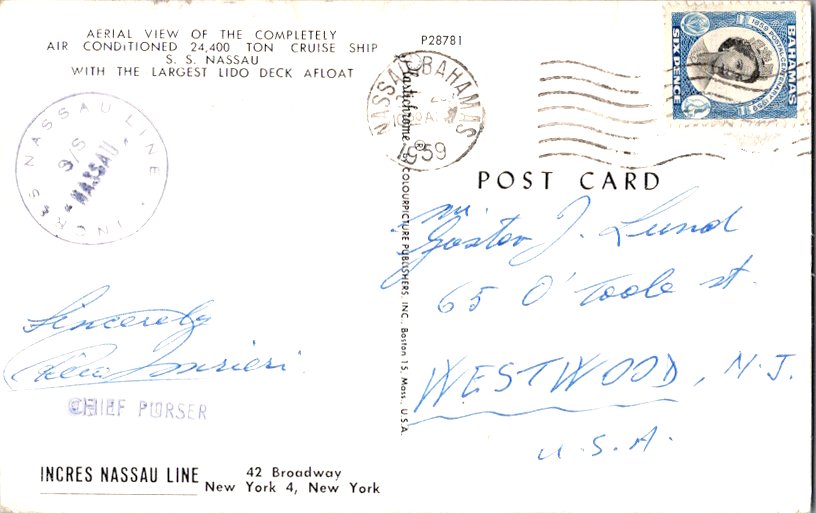 AERIAL VIEW OF THE COMPLETELY
AIR CONDITIONED 24,400 TON CRUISE SHIP
S. S. NASSAU
WITH THE LARGEST LIDO DECK AFLOAT
P28781
INCRES NASSAU LINE
S/S
"NASSAU"
Sincerely
CHIEF PURSER
INCRES NASSAU LINE
42 Broadway
New York 4, New York
Plastichrome ® by COLOURPICTURE PUBLISHERS, INC., Boston 15, Mass., U.S.A.
NASSAU BAHAMAS
1959
1859 POSTAL CENTENARY 1959
BAHAMAS
SIX PENCE
POST CARD
Mr.
Gustav J. Lund
65 O'Toole st.
WESTWOOD, N.J.
U.S.A.